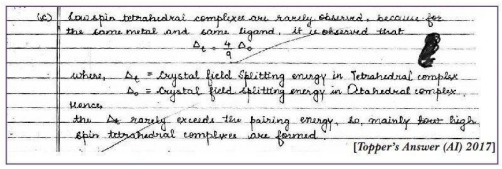 (c) Low spin tetrahedral complexes are rarely observed, because for
the same metal and same ligand, it is observed that
Δt = 4/9 Δo
where, Δt = Crystal field Splitting energy in Tetrahedral complex
Δo = Crystal field splitting energy in Octahedral complex
Hence,
the Δt rarely exceeds the pairing energy, so, mainly high
spin tetrahedral complexes are formed.
[Topper's Answer (AI) 2017]